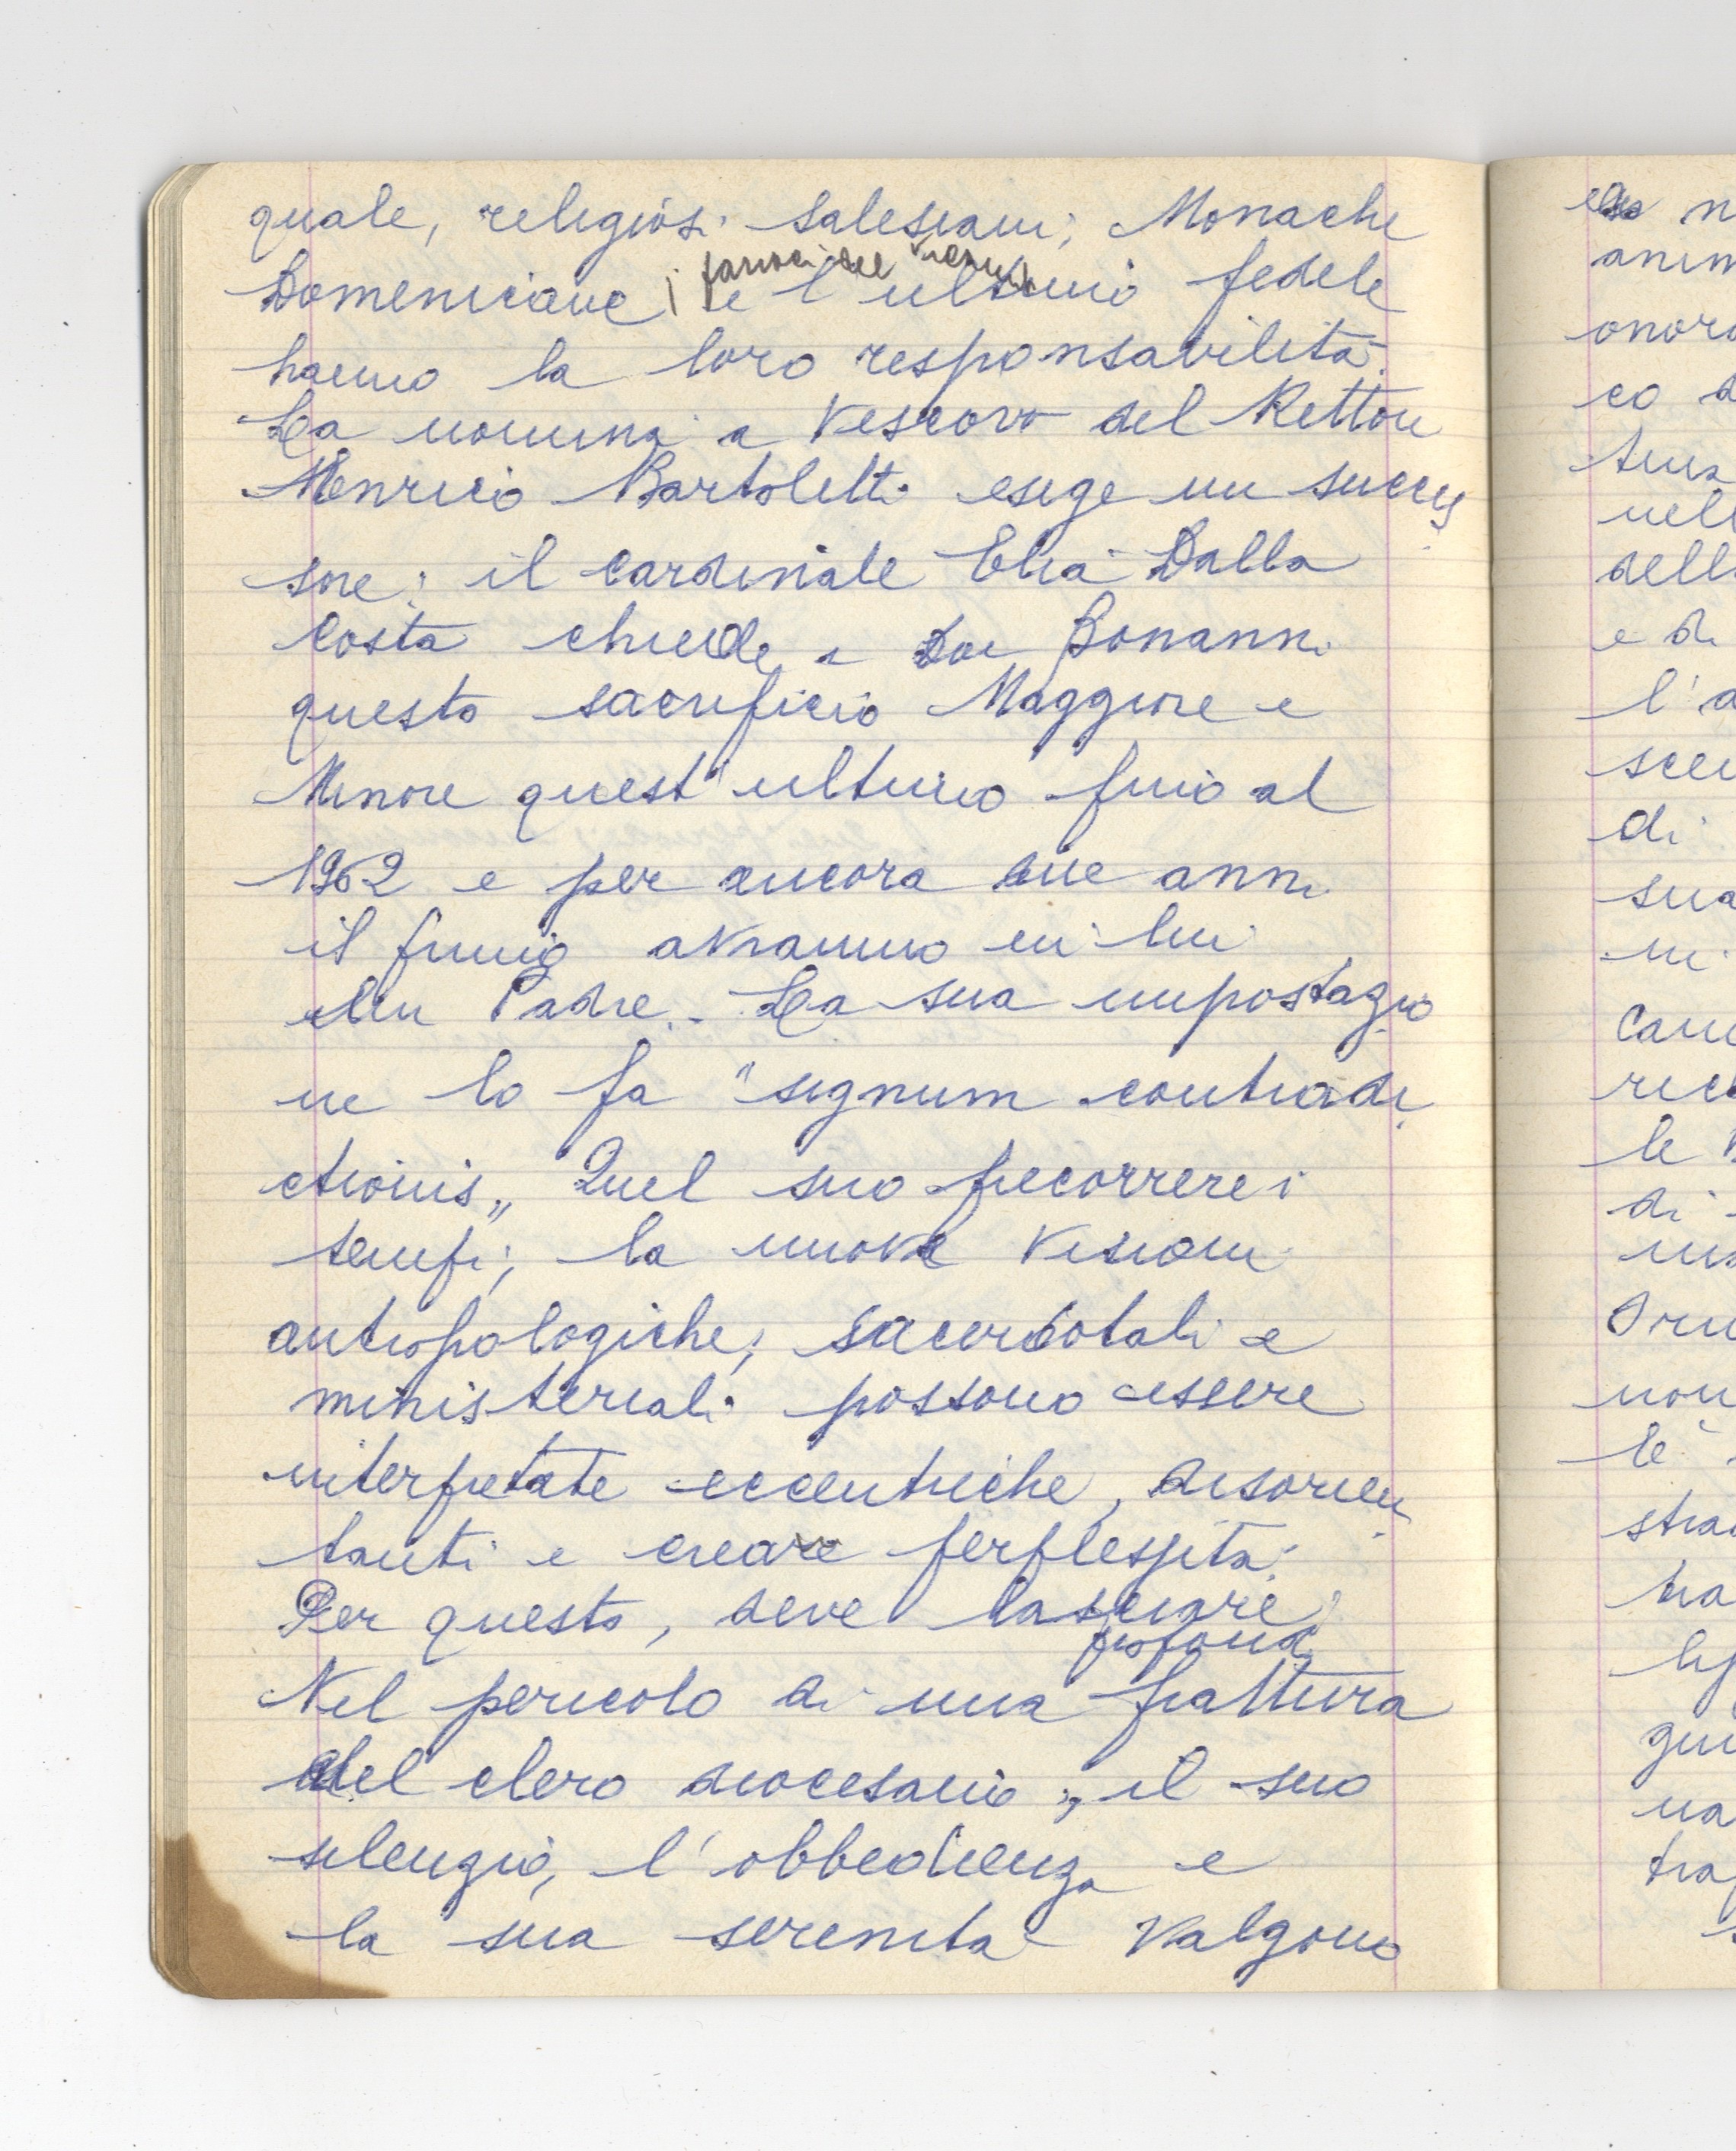 quale, religiosi salesiani; Monache
parroci
Domenicane; e l'ultimo fedele
hanno la loro responsabilità.
La nomina a Vescovo del Rettore
Henrico Bartoletti esige un succes
sore; il cardinale Elia Dalla
Costa chiede a Don Bonanni
questo sacrificio Maggiore e
Minore quest'ultimo fino al
1962 e per ancora due anni
il Primo avranno in lui
un Padre. La sua impostazio
ne lo fa "signum contradi
ctionis„ Quel suo precorrere i
tempi; la nuove visioni
antropologiche; sacerdotali e
ministeriali possono essere
interpretate eccentriche, disorien
tanti e creare perplessità.
Per questo, deve lasciare;
profonda
Nel pericolo di una frattura
del clero diocesano; il suo
silenzio, l'obbedienza e
la sua serenità valgono
ani
onor
co
nell
dell
e di
l'a
di
sua
ric
le
di
non
le
ha
na